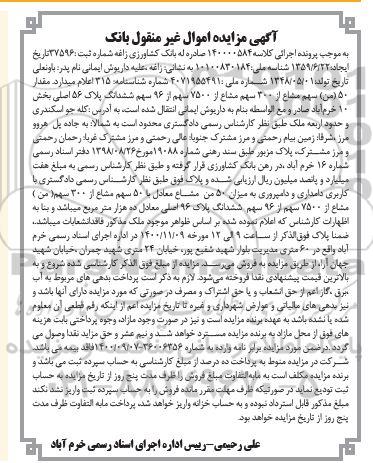 آگهی مزایده اموال غیر منقول بانک
به موجب پرونده اجرائی کلاسه ۱۴۰۰۰۰۵۸۴ صادره له بانک کشاورزی زاغه شماره ثبت:۳۷۵۹۶تاریخ
ایجاد:۱۳۵۹/۶/۲۲ شناسه ملی:۱۰۱۰۰۸۳۰۱۸۴ به نشانی: زاغه ،علیه داریوش ایمانی نام پدر: باونعلی
تاریخ تولد:۱۳۴۸/۰۵/۰۱ شماره ملی :۴۰۷۱۹۵۵۴۹۱ شماره شناسنامه: ۳۱۵ اعلام میدارد. مقدار
۵۰ (من) سهم مشاع از ۳۰۰ سهم مشاع از ۷۵۰۰ سهم از ۹۶ سهم ششدانگ پلاک ۵۶ اصلی بخش
۱۰ خرم آباد صادر و مع الواسطه بنام به داریوش ایمانی انتقال شده است، به آدرس :کله جو اسکندری
و حدود اربعه ملک طبق نظر کارشناس رسمی دادگستری محدود است به شمالا: به جاده پل هروو
مرز ،شرقا: زمین بیام رحمتی و مرز مشترک جنوبا: عالی رحمتی و مرز مشترک غربا: رحمان رحمتی
و مرز مشترک، پلاک مزبور طبق سند رهنی شماره ۱۹۰۸۸ مورخ ۱۳۹۸/۰۸/۲۶ دفتر اسناد رسمی
شماره ۱۶ خرم آباد ،در رهن بانک کشاورزی قرار گرفته و طبق نظر کارشناس رسمی به مبلغ هفت
میلیارد و پانصد میلیون ریال ارزیابی شده و پلاک فوق طبق نظر کارشناس رسمی دادگستری با
کاربری دامداری و دامپروری به میزان ۵۰ من مشاع معادل با ۵۰ سهم مشاع از ۳۰۰ سهم( من )
مشاع از ۷۵۰۰ سهم از ۹۶ سهم ششدانگ پلاک ۹۶ اصلی معادل ده هزار متر مربع میباشد و بنا به
اظهارات کارشناس که اعلام نموده شده بر اساس ظواهر موجود ملک مذکور فاقد انشعابات میباشد.
ضمنا پلاک فوق الذکر از ساعت ۹ الی ۱۲ مورخه ۱۴۰۰/۱۱/۰۹ در اداره اجرای اسناد رسمی خرم
آباد واقع در ۶۰ متری مدیریت بلوار شهید شفیع پور، خیابان ۲۴ متری شهید چمران ،خیابان شهید
جهان آرا، از طریق مزایده به فروش می رسد. مزایده از مبلغ فوق الذکر کارشناسی شده شروع و به
بالاترین قیمت پیشنهادی نقدا فروخته می‌شود. لازم به ذکر است پرداخت بدهی های مربوط به آب
،برق ،گاز اعم از حق انشعاب و یا حق اشتراک و مصرف در صورتی که مورد مزایده دارای آنها باشد و
نیز بدهی های مالیاتی و عوارض شهرداری و غیره تا تاریخ مزایده اعم از اینکه رقم قطعی آن معلوم
شده یا نشده باشد به عهده برنده مزایده است و نیز در صورت وجود مازاد، وجوه پرداختی بابت هزینه
های فوق از محل مازاد به برنده مزایده مسترد خواهد شد و نیم عشر و حق مزایده نقدا وصول می
گردد. درضمن مورد مزایده برابر نامه وارده به شماره فاقد بیمه می باشد.
شرکت در مزایده منوط به پرداخت ده درصد از مبلغ کارشناسی به حساب سپرده ثبت می باشد و
برنده مزایده مکلف است به مابه التفاوت مبلغ فروش را ظرف مدت پنج روز از تاریخ مزایده به حساب
ثبت تودیع نماید در صورتیکه ظرف مهلت مقرر مانده فروش را به حساب سپرده ثبت واریز نشد نکند
مبلغ مذکور قابل استرداد نبوده و به حساب خزانه واریز خواهد شد، پرداخت مابه التفاوت ظرف مدت
پنج روز از تاریخ مزایده خواهد بود.
علی رحیمی-رییس اداره اجرای اسناد رسمی خرم آباد